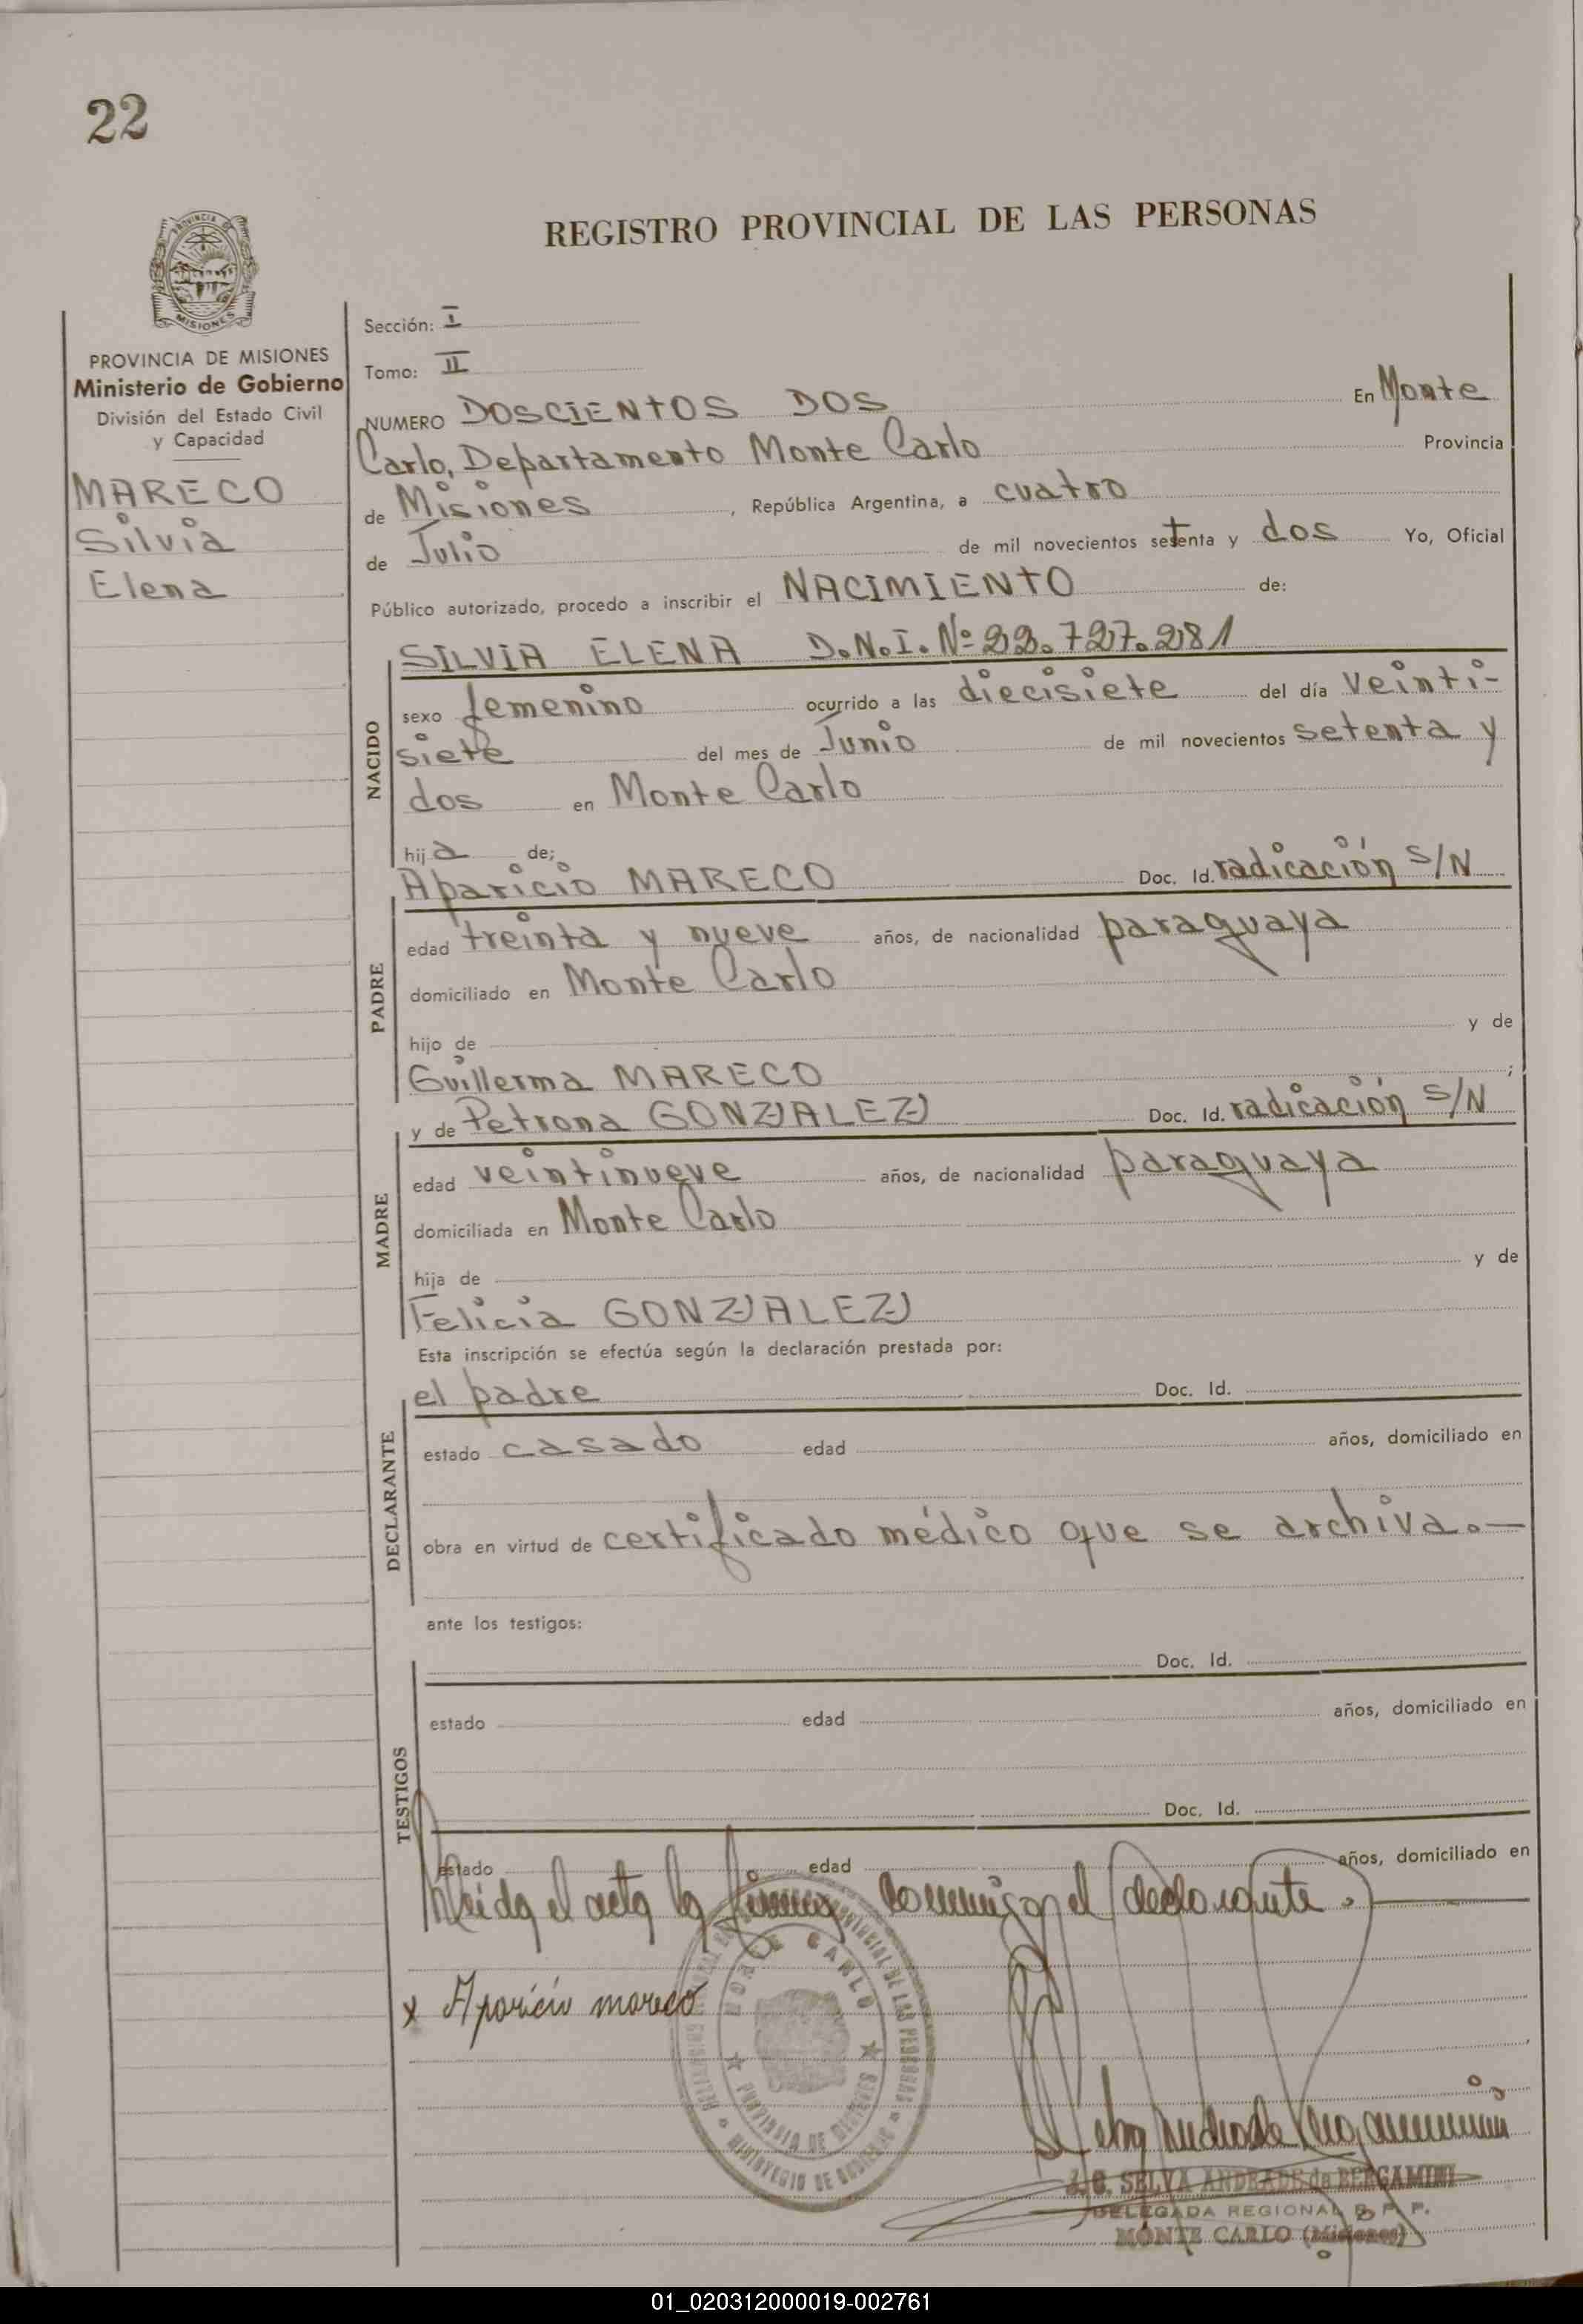 22
PROVINCIA DE
MISIONES
REGISTRO PROVINCIAL DE LAS PERSONAS
PROVINCIA DE MISIONES
Ministerio de Gobierno
División del Estado Civil
y Capacidad
MARECO
Silvia
Elena
Sección: I
Tomo: II
NUMERO DOSCIENTOS DOS En Monte
Carlo, Departamento Monte Carlo Provincia
de Misiones, República Argentina, a cuatro
de Julio de mil novecientos setenta y dos Yo, Oficial
Público autorizado, procedo a inscribir el NACIMIENTO de:
SILVIA ELENA D.N.I. Nº 22.727.281
NACIDO
sexo femenino ocurrido a las diecisiete del día veinti-
siete del mes de Junio de mil novecientos setenta y
dos en Monte Carlo
hija de;
Aparicio MARECO Doc. Id. radicación S/N
PADRE
edad treinta y nueve años, de nacionalidad paraguaya
domiciliado en Monte Carlo
hijo de y de
Guillerma MARECO ;
y de Petrona GONZALEZ Doc. Id. radicación S/N
MADRE
edad veintinueve años, de nacionalidad paraguaya
domiciliada en Monte Carlo
hija de y de
Felicia GONZALEZ
Esta inscripción se efectúa según la declaración prestada por:
el padre Doc. Id.
DECLARANTE
estado casado edad años, domiciliado en
obra en virtud de certificado médico que se archiva.—
ante los testigos:
Doc. Id.
TESTIGOS
estado edad años, domiciliado en
Doc. Id.
estado edad años, domiciliado en
leida el acta la firma conmigo el declarante.
x Aparicio mareco
MONTE CARLO
PROVINCIA DE MISIONES
MINISTERIO DE GOBIERNO
PROVINCIAL DE LAS PERSONAS
SELVA ANDRADE de BERGAMINI
DELEGADA REGIONAL R. P. P.
MONTE CARLO (Misiones)
01_020312000019-002761